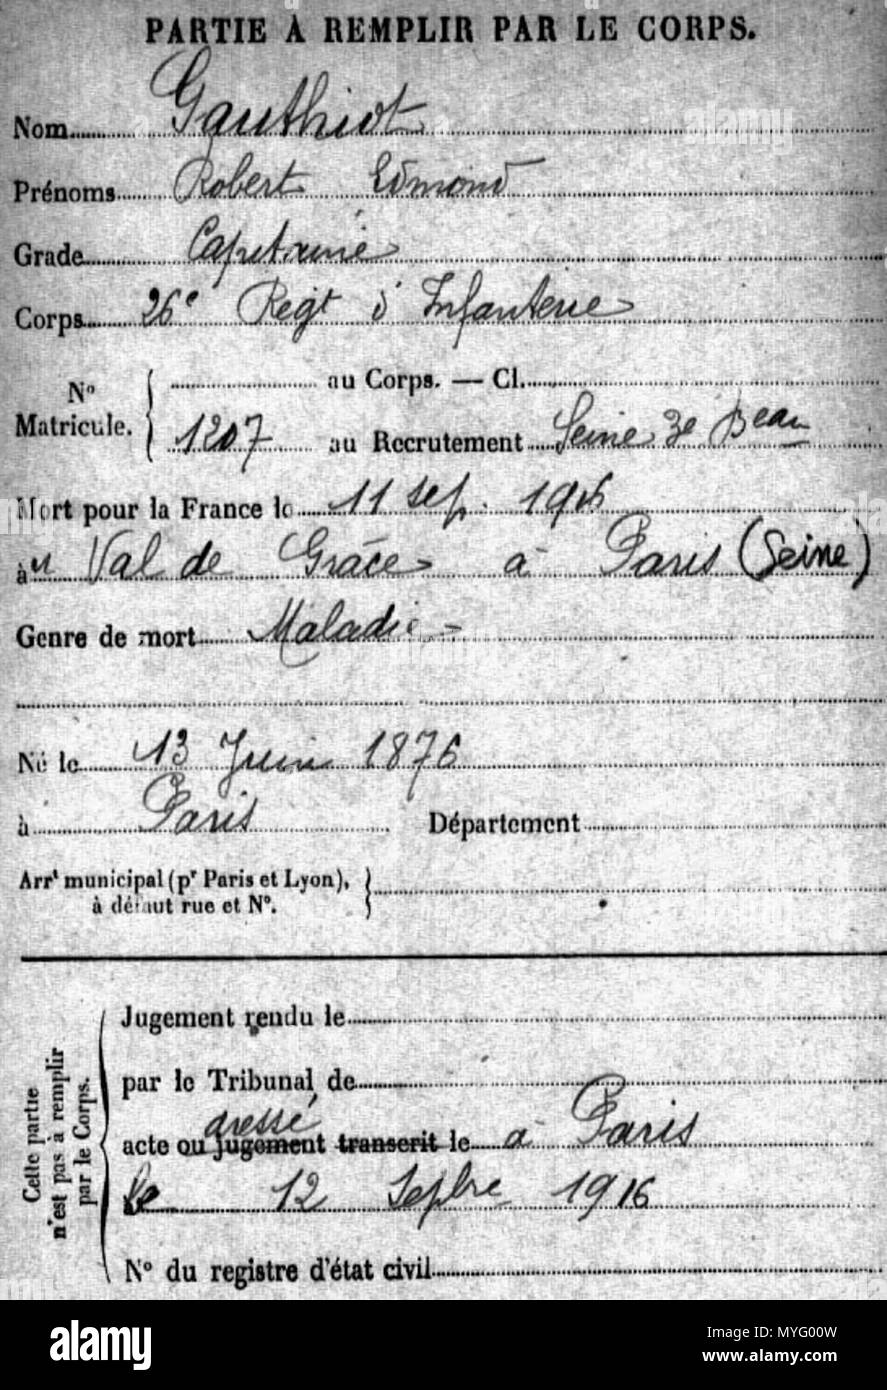 PARTIE À REMPLIR PAR LE CORPS.
Nom Gauthiot
Prénoms Robert Edmond
Grade Capitaine
Corps 26e Regt d'Infanterie
No Matricule. { au Corps. — Cl.
1207 au Recrutement Seine 3e Beau
Mort pour la France le 11 sep. 1916
àu Val de Grâce à Paris (Seine)
Genre de mort Maladie
Né le 13 Juin 1876
à Paris Département
Arrt municipal (pr Paris et Lyon),
à défaut rue et No.
Cette partie n'est pas à remplir par le Corps.
Jugement rendu le
par le Tribunal de
dressé
acte ou jugement transcrit le à Paris
le 12 Sepbre 1916
No du registre d'état civil
alamy
Image ID: MYG00W
www.alamy.com